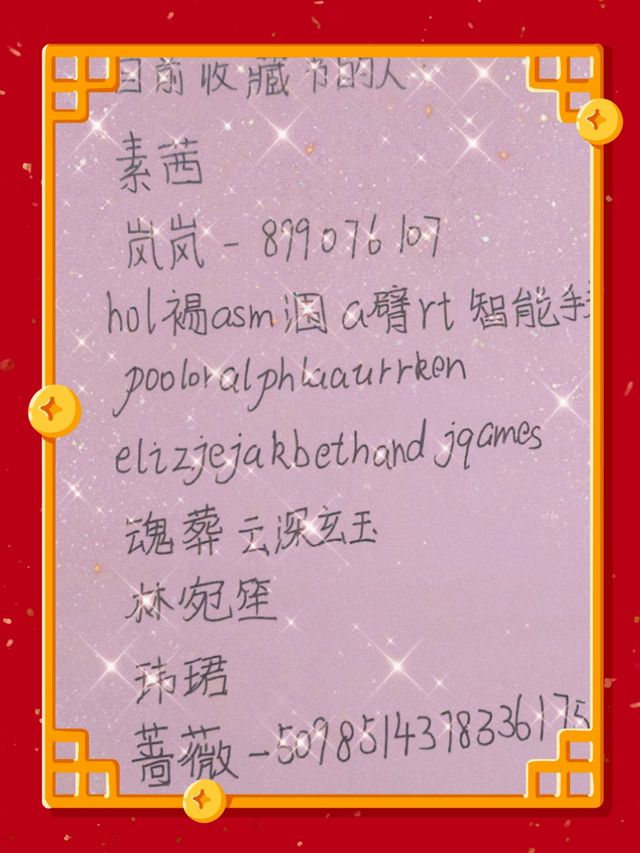 目前收藏书的人:
素茜
岚岚-899076107
hol褐asm涸a臂rt智能手
pooloralphlaaurrken
elizjejakbethandjqames
魂葬云深玄玉
林宛笙
玮珺
蔷薇-5098514378336175